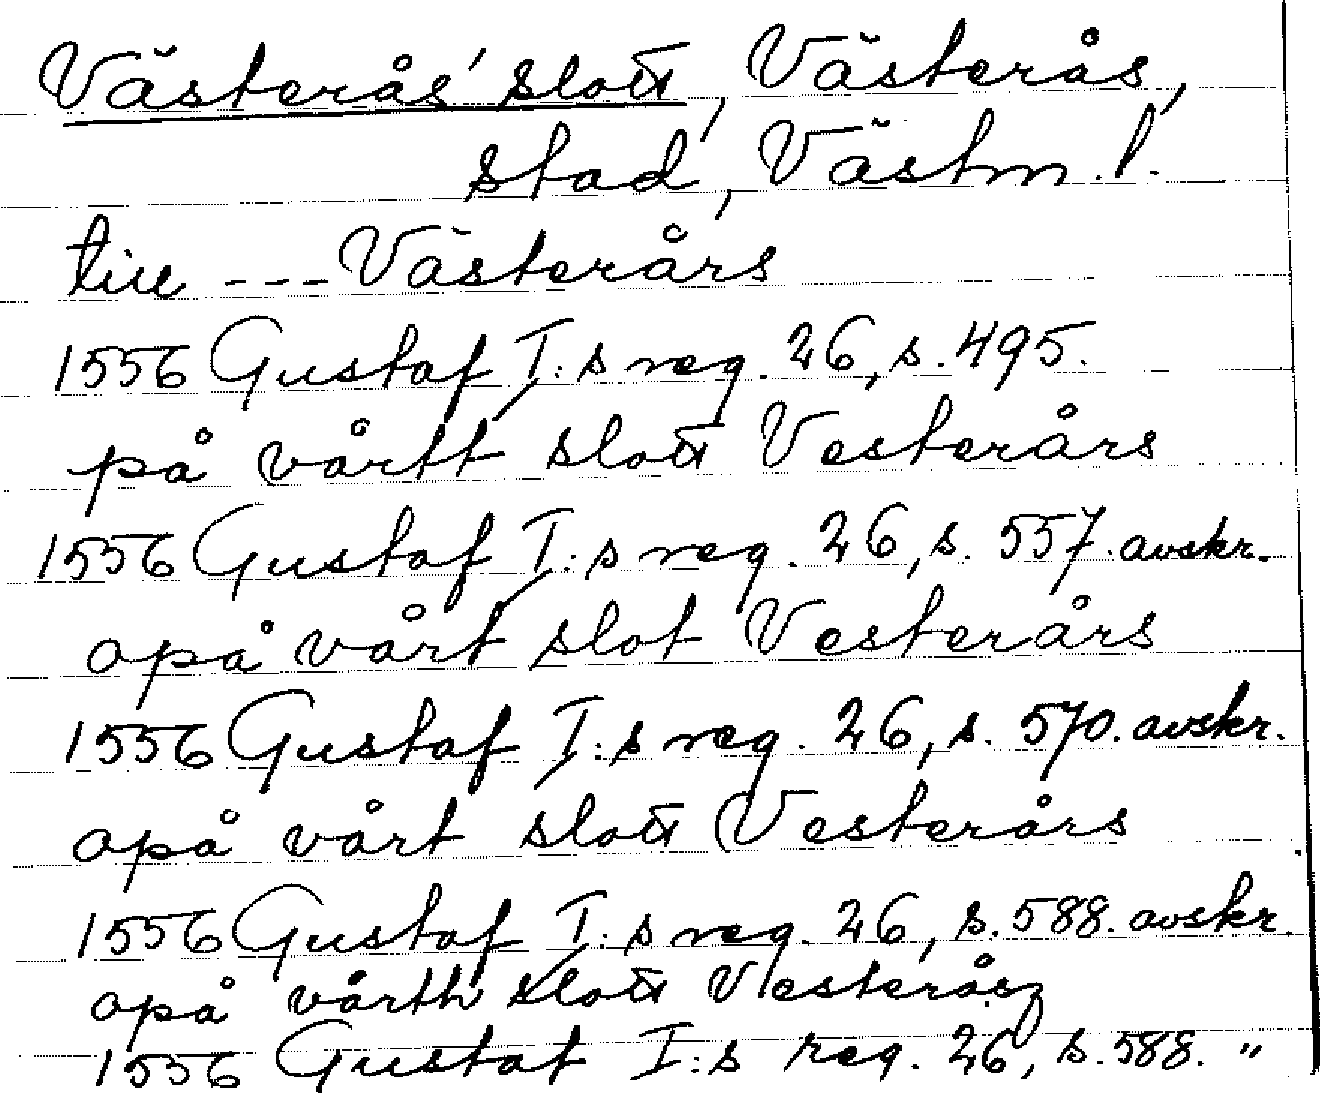 Västerås slott, Västerås,
stad, Västm. l.
till --- Västerårs
1556 Gustaf I:s reg. 26, s. 495.
på vårtt slott Vesterårs
1556 Gustaf I:s reg. 26, s. 557. avskr.
opå vårt slot Vesterårs
1556 Gustaf I:s reg. 26, s. 570. avskr.
opå vårt slott Vesterårs
1556 Gustaf I:s reg. 26, s. 588. avskr.
opå vårth slott Vesteråsz
1556 Gustaf I:s reg. 26, s. 588. "